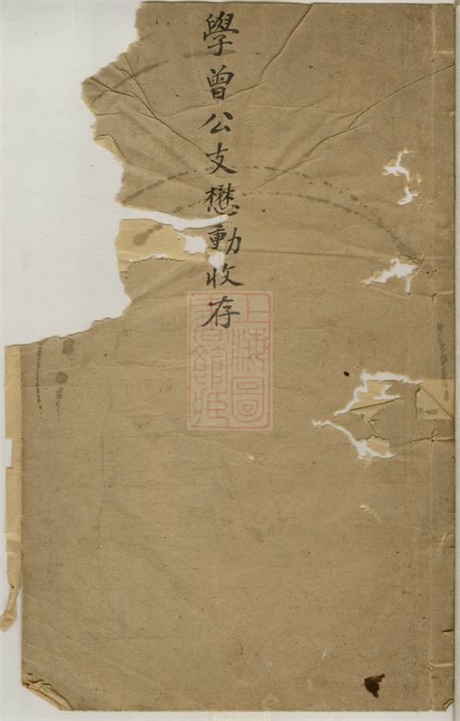 學曾公支懋動收存
上海圖
書館藏